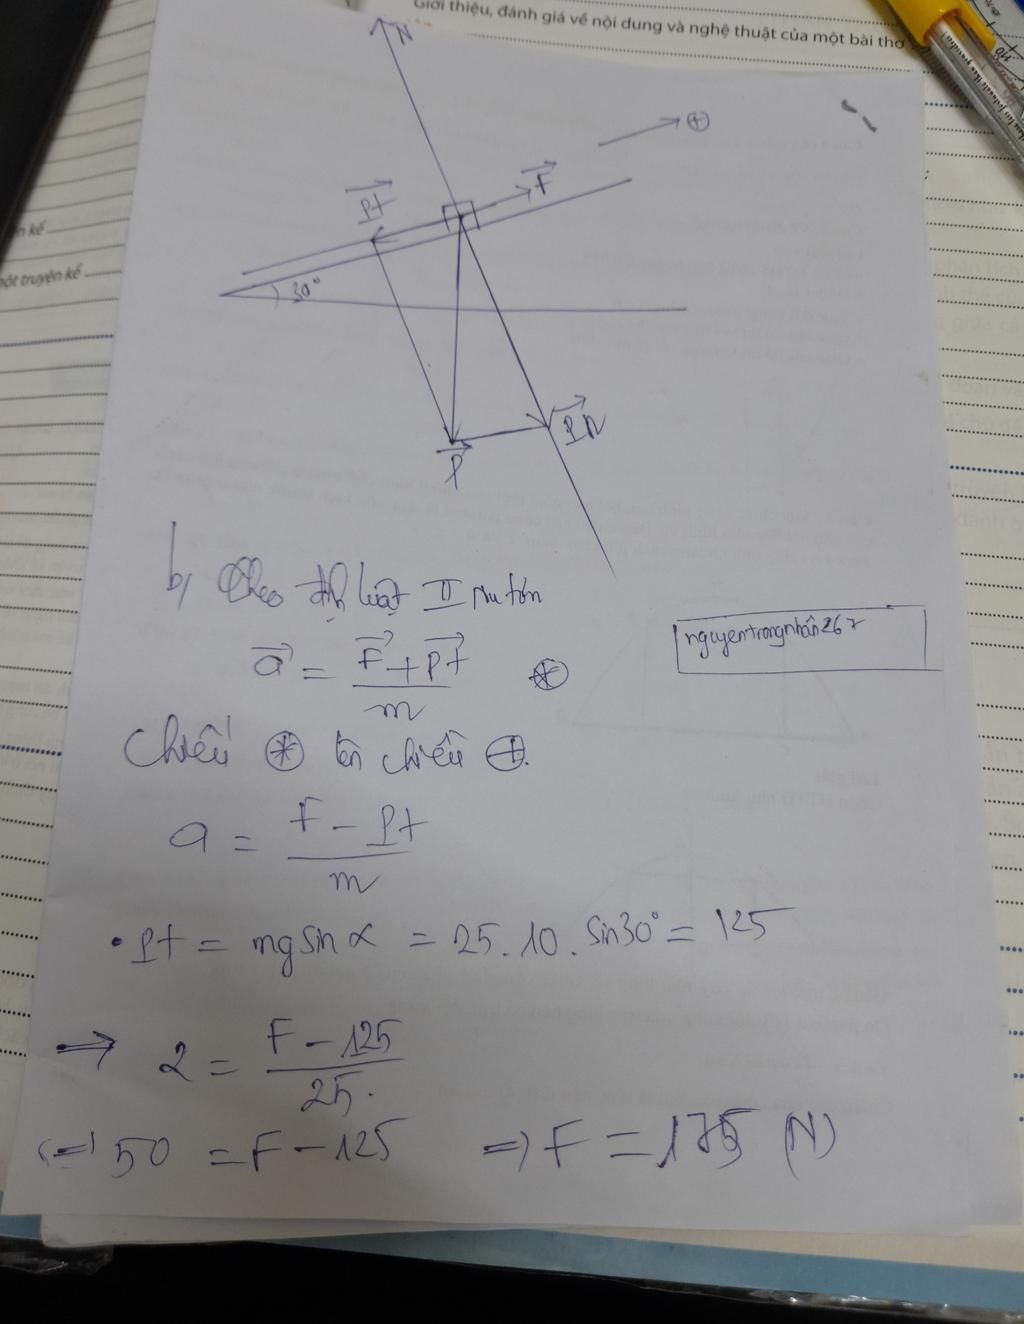 Giới thiệu, đánh giá về nội dung và nghệ thuật của một bài thơ
N
⊕
F
Pt
30°
Pn
P
n kể
một truyện kể
b, Theo định luật II Niu tơn
a = F + Pt / m ⊛
nguyentrongnhân267
Chiếu ⊛ lên chiều ⊕.
a = F - Pt / m
• Pt = mg sin α = 25. 10. sin30° = 125
⇒ 2 = F - 125 / 25.
(=) 50 = F - 125 => F = 175 (N)